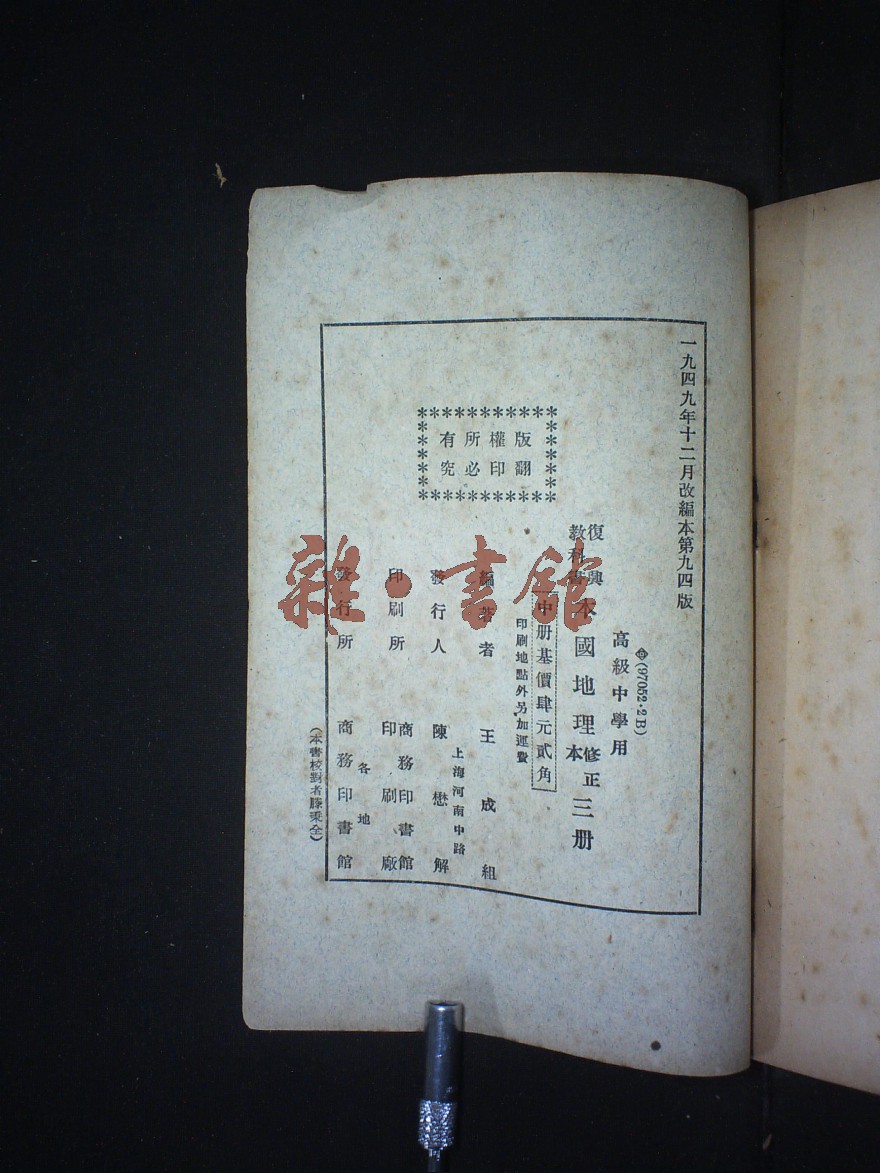 一九四九年十二月改編本第九四版
(97052·2B)
高級中學用
復興教科書 本國地理 修正本 三册
中册基價肆元貳角
印刷地點外另加運費
版權所有
翻印必究
編著者 王成組
上海河南中路
發行人 陳懋解
印刷所 商務印書館印刷廠
各地
發行所 商務印書館
(本書校對者滕秉全)
雜·書館